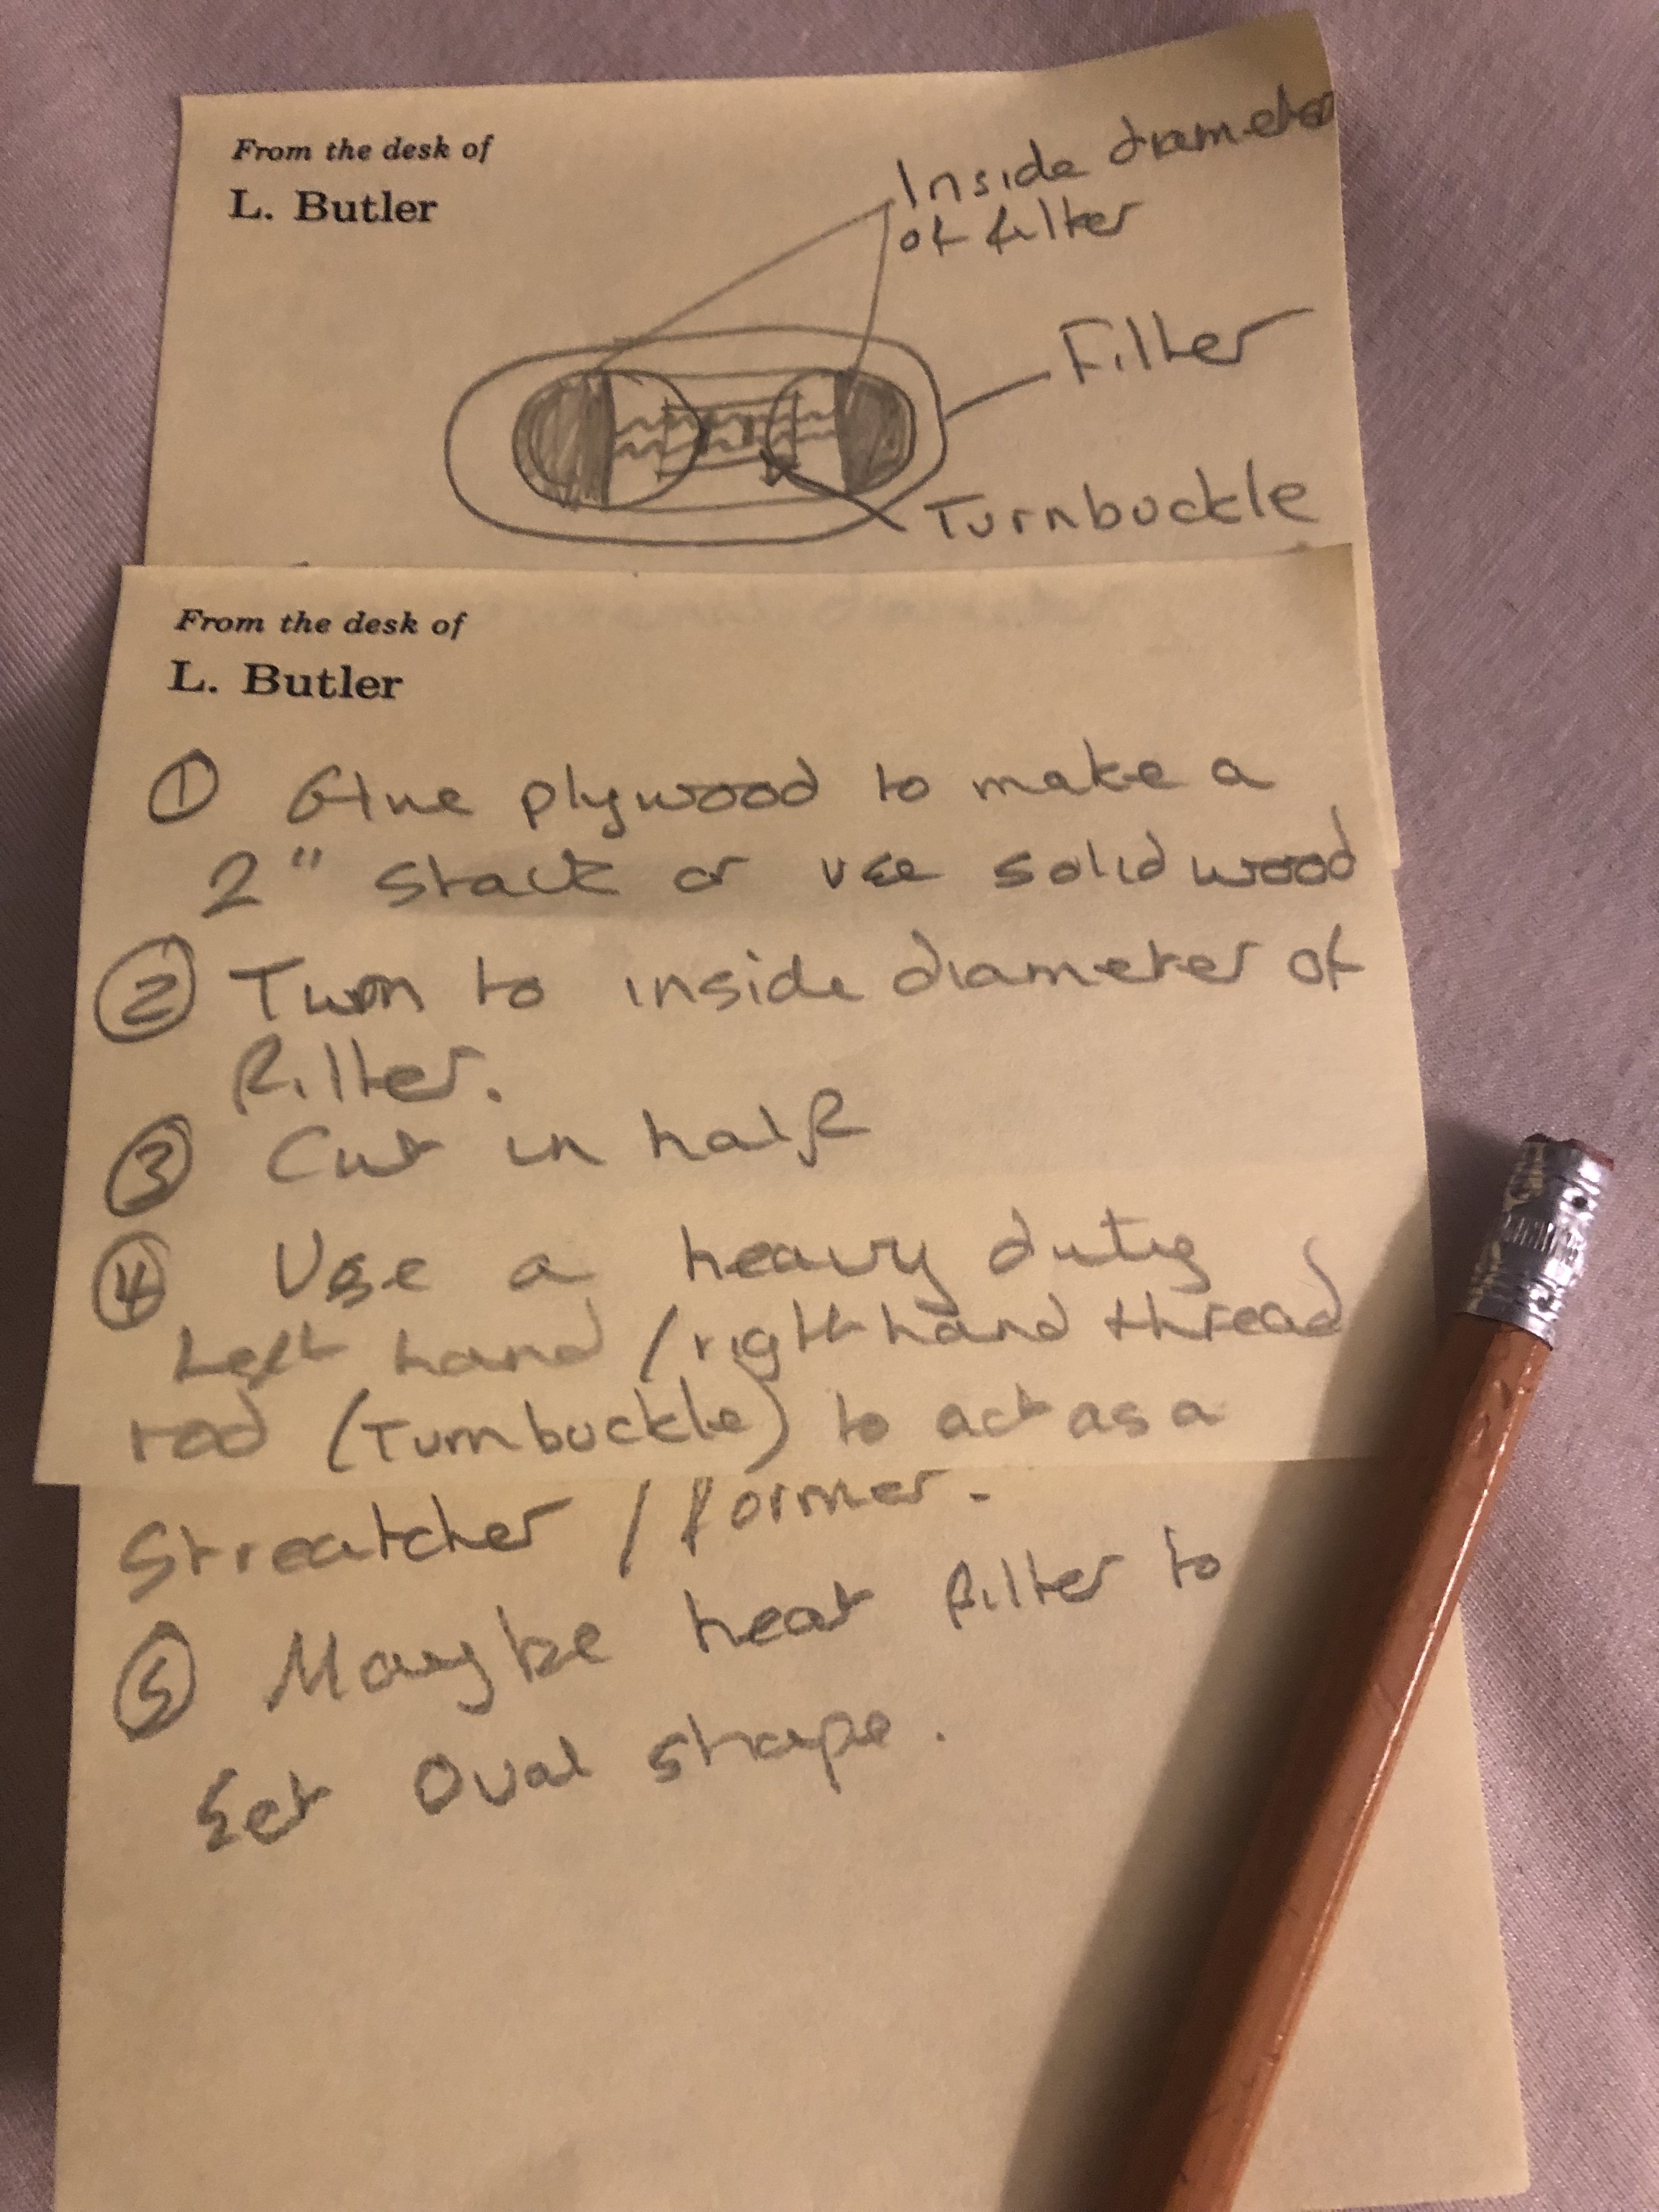 From the desk of
L. Butler
Inside diameter
of filter
Filter
Turnbuckle
From the desk of
L. Butler
① Glue plywood to make a
2" stack or use solid wood
② Turn to inside diameter of
filter.
③ Cut in half
④ Use a heavy duty
Left hand / right hand thread
rod (Turnbuckle) to act as a
Streatcher / former.
⑤ Maybe heat filter to
Set Oval shape.